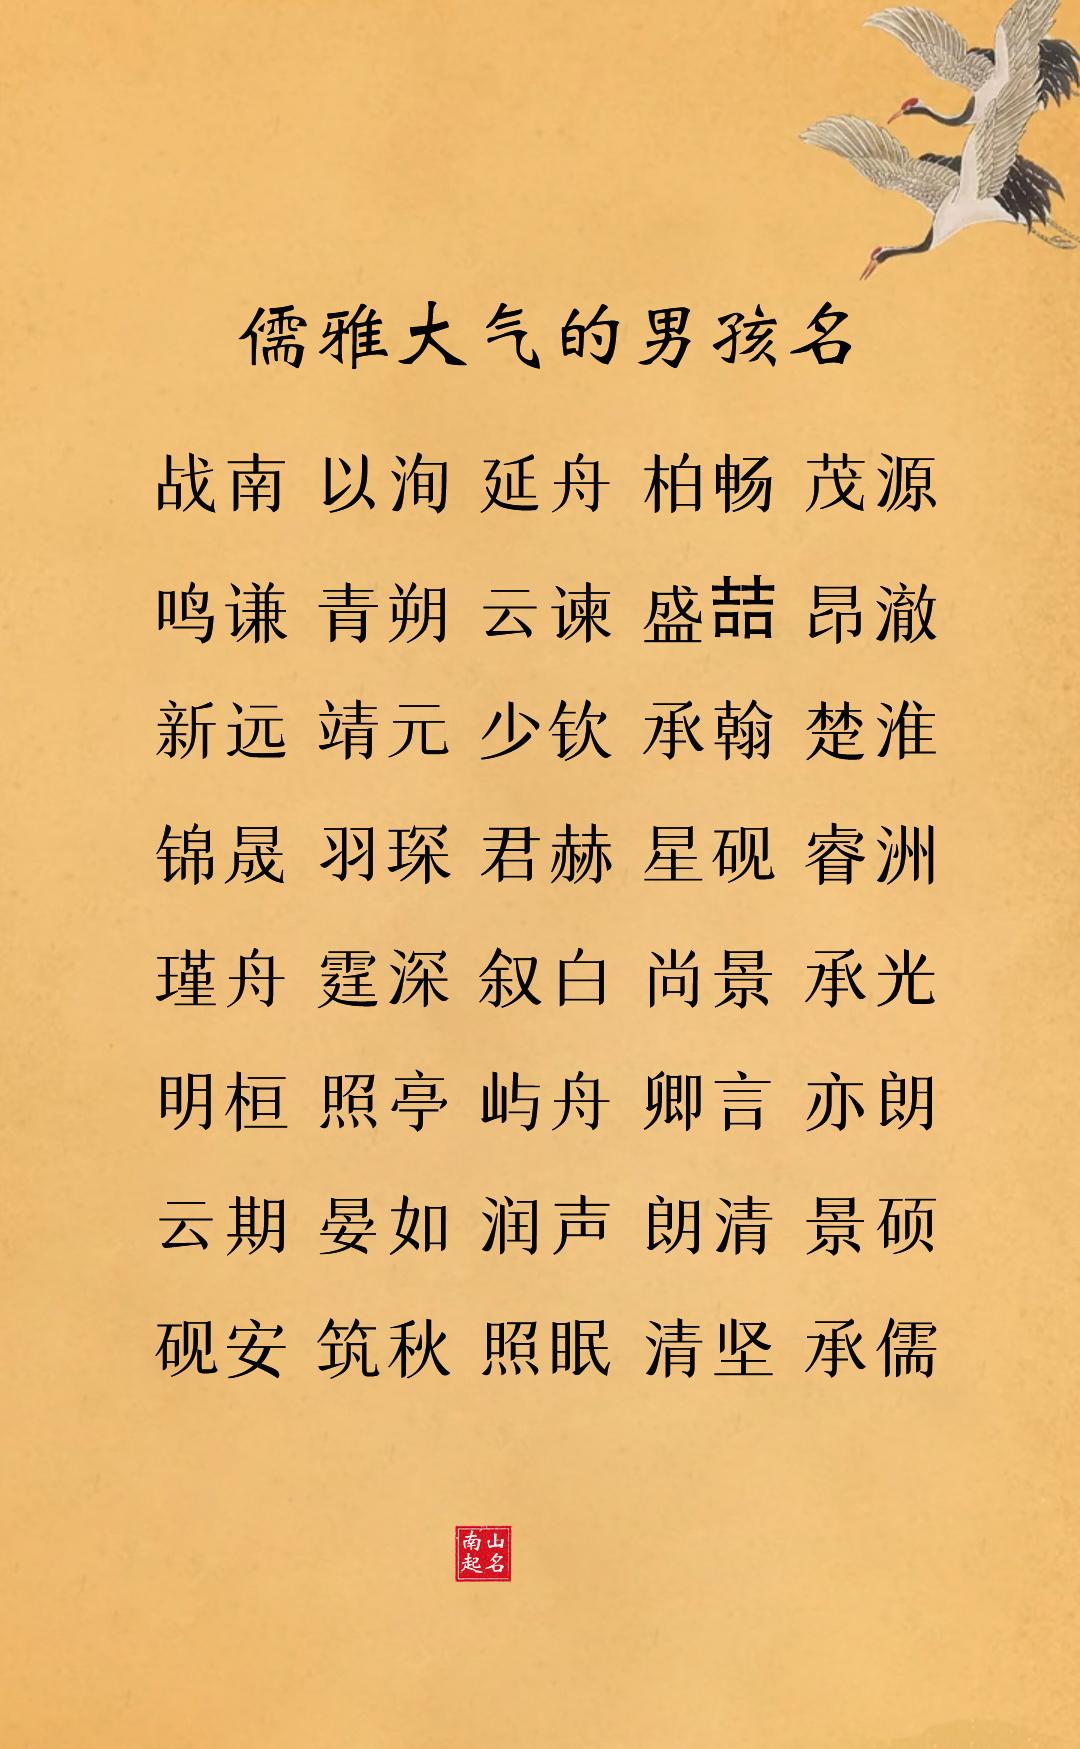 儒雅大气的男孩名
战南 以洵 延舟 柏畅 茂源
鸣谦 青朔 云谏 盛喆 昂澈
新远 靖元 少钦 承翰 楚淮
锦晟 羽琛 君赫 星砚 睿洲
瑾舟 霆深 叙白 尚景 承光
明桓 照亭 屿舟 卿言 亦朗
云期 晏如 润声 朗清 景硕
砚安 筑秋 照眠 清坚 承儒
南山
起名